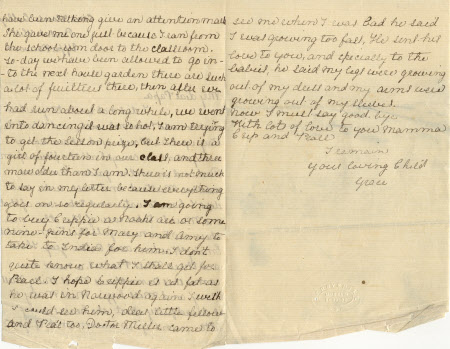 have been talking give an attention mark
She gave me one just because I ran from
the school room door to the classroom.
to-day we have been allowed to go in-
-to the next house garden there are such
a lot of fruit trees there, then after we
had run about a long while, we went
into dancing it was so hot. I am trying
to get the lesson prize, but there is a
girl of fourteen in our class, and three
more older than I am. There is not much
to say in my letter because everything
goes on so regularly. I am going
to buy Cuppie a or some
nine-pins for Mary and Amy to
take to India for him. I don't
quite know what I shall get for
Pearl. I hope Cuppie is as fat as
he was in Norwood again. I wish
I could see him, dear little fellow
and Pearl too. Doctor came to
see me when I was bad he said
I was growing too fast. He sent his
love to you, and specially to the
babies, he said my legs were growing
out of my dress and my arms were
growing out of my sleeves.
Now I must say good bye
With lots of love to you Mamma
Cup and Pearl
I remain
Your loving Child